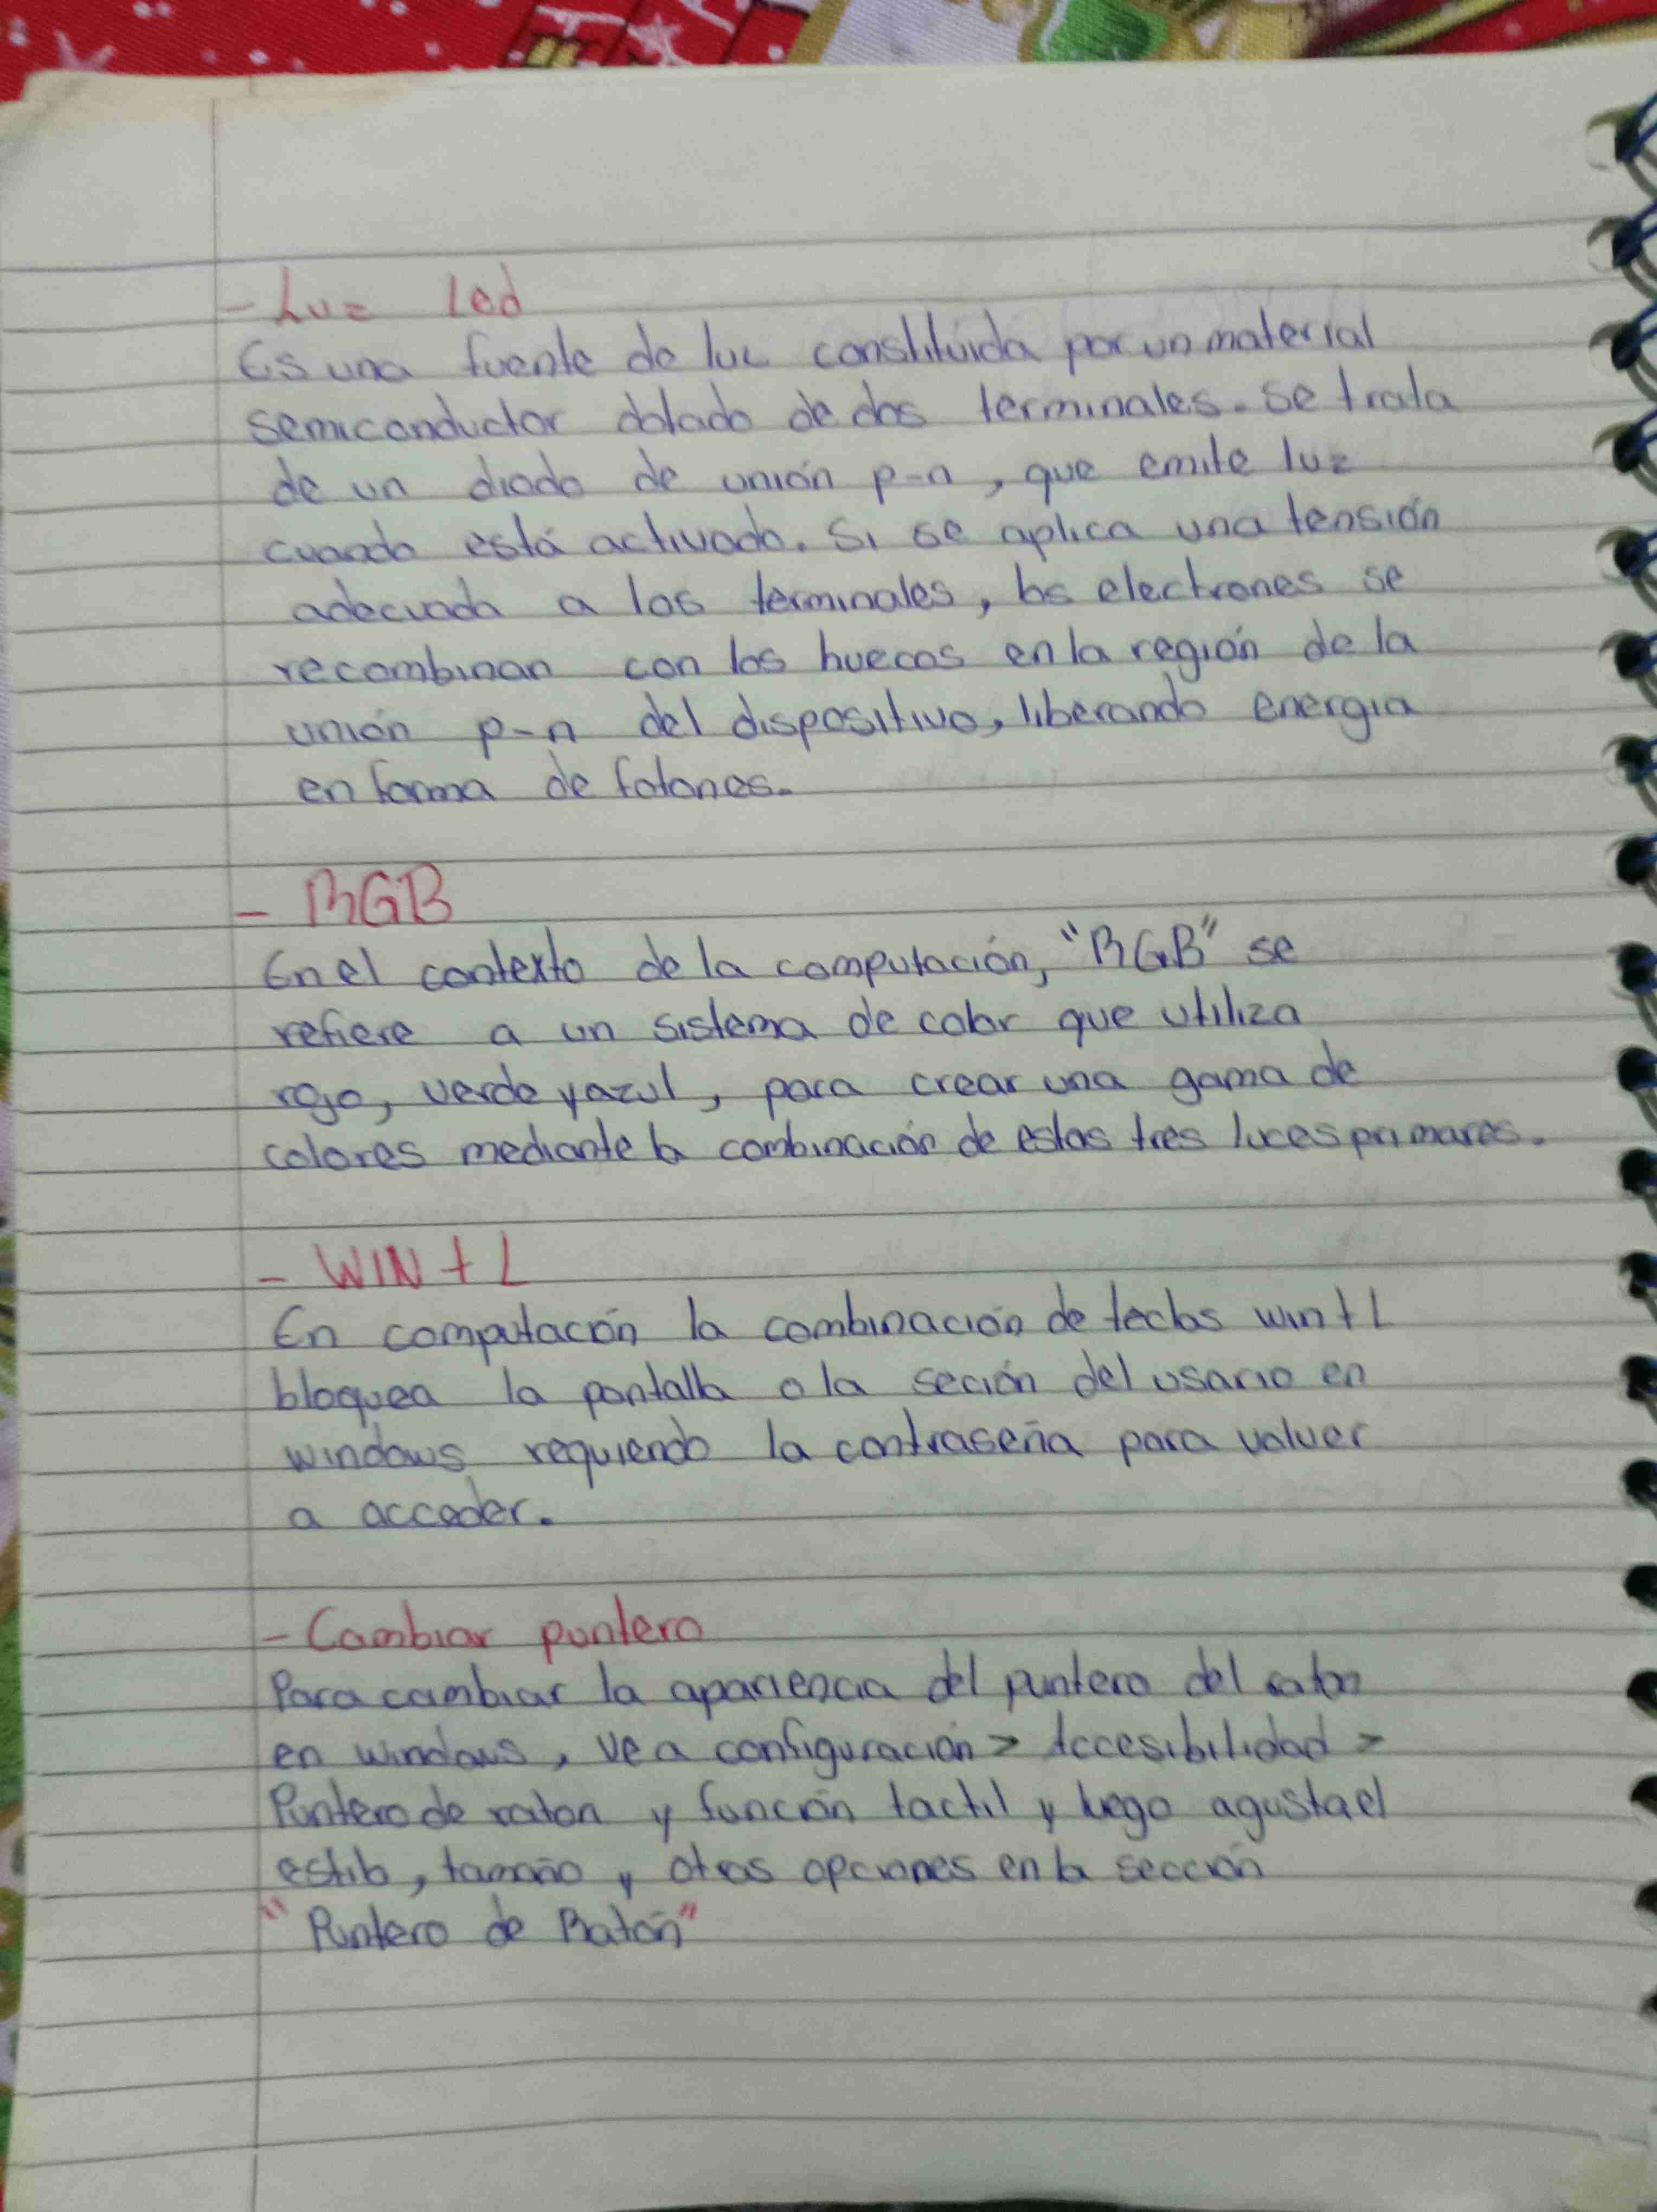 - Luz Led
Es una fuente de luz constituida por un material
semiconductor dotado de dos terminales. se trata
de un diodo de unión p-n, que emite luz
cuando está activado. Si se aplica una tensión
adecuada a los terminales, los electrones se
recombinan con los huecos en la región de la
unión p-n del dispositivo, liberando energia
en forma de fotones.
- RGB
En el contexto de la computación, "RGB" se
refiere a un sistema de color que utiliza
rojo, verde y azul, para crear una gama de
colores mediante la combinación de estas tres luces primares.
- WIN + L
En computación la combinación de teclas win + L
bloquea la pantalla o la seción del usario en
windows requiendo la contraseña para valver
a acceder.
- Cambiar puntero
Para cambiar la apariencia del puntero del raton
en windows, ve a configuración > Accesibilidad >
Puntero de raton y función tactil y luego agusta el
estilo, tamaño y otras opciones en la sección
"Puntero de Ratón"